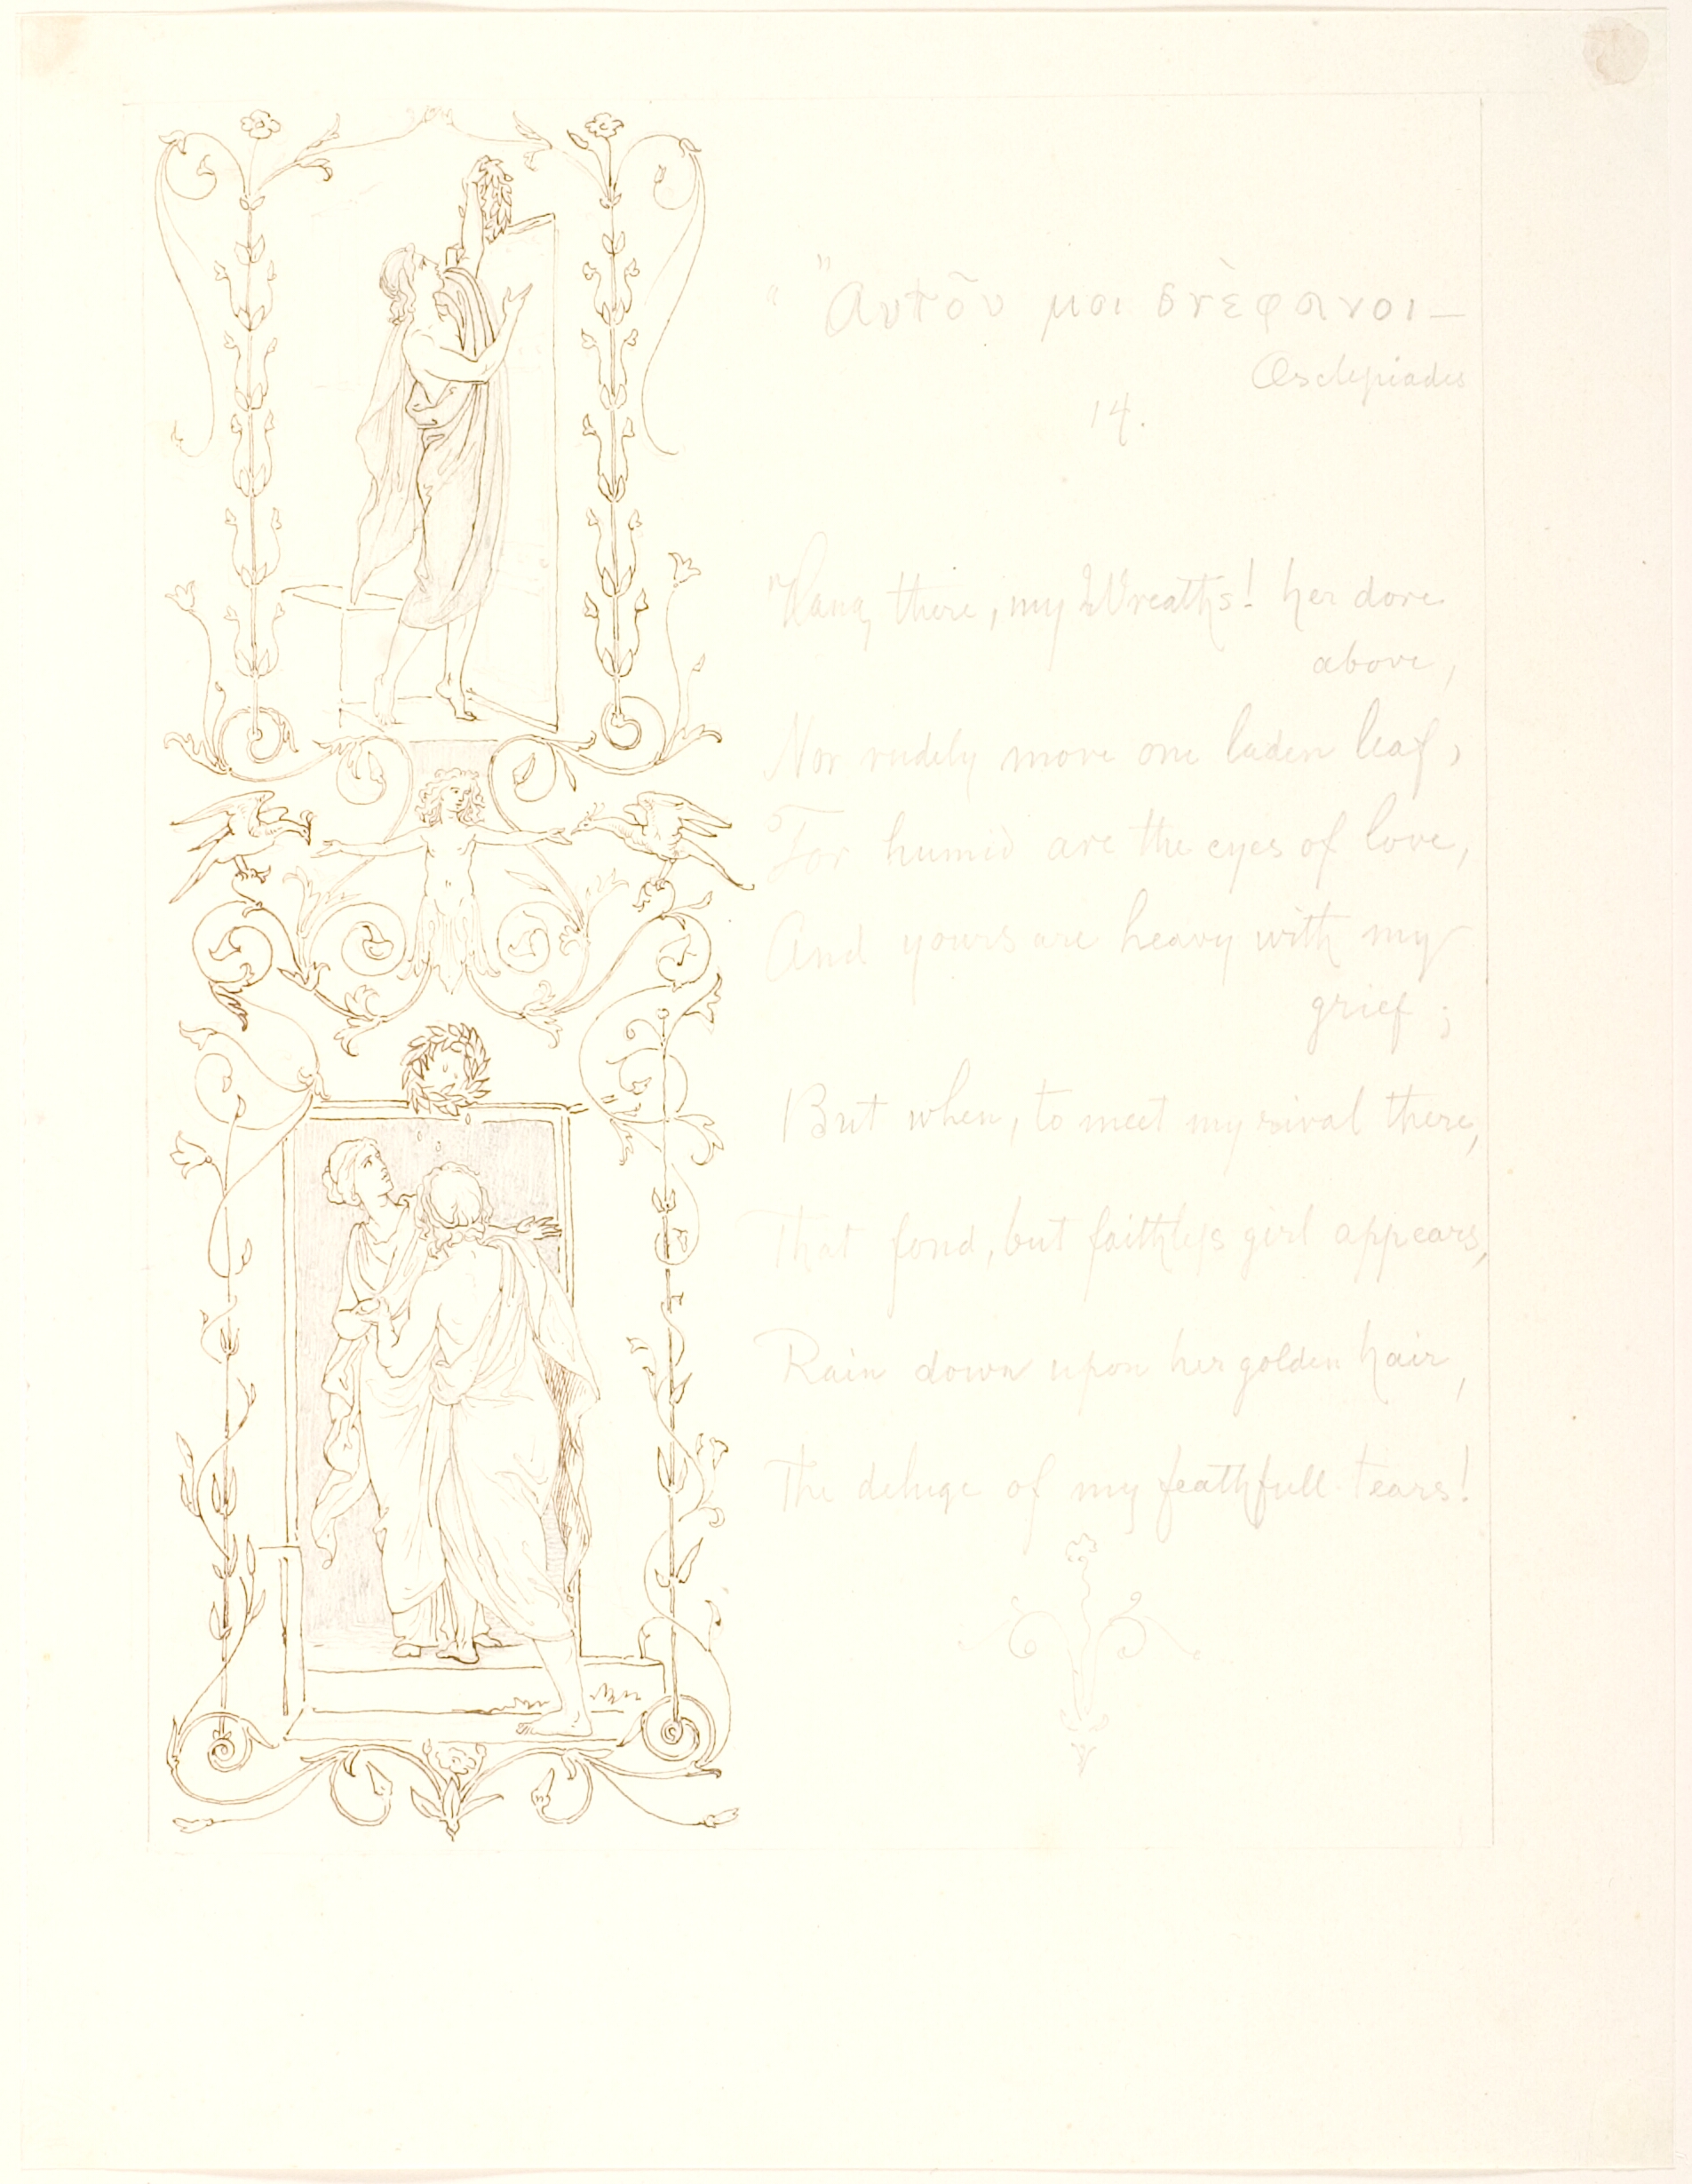 “ "Αυτοῦ μοι στὲφανοι —
Asclepiades
14.
"Hang there, my Wreaths! her dore
above,
Nor rudely move one laden leaf,
For humid are the eyes of love,
And yours are heavy with my
grief;
But when, to meet my rival there,
That fond, but faithless girl appears,
Rain down upon her golden hair,
The deluge of my feathfull tears!